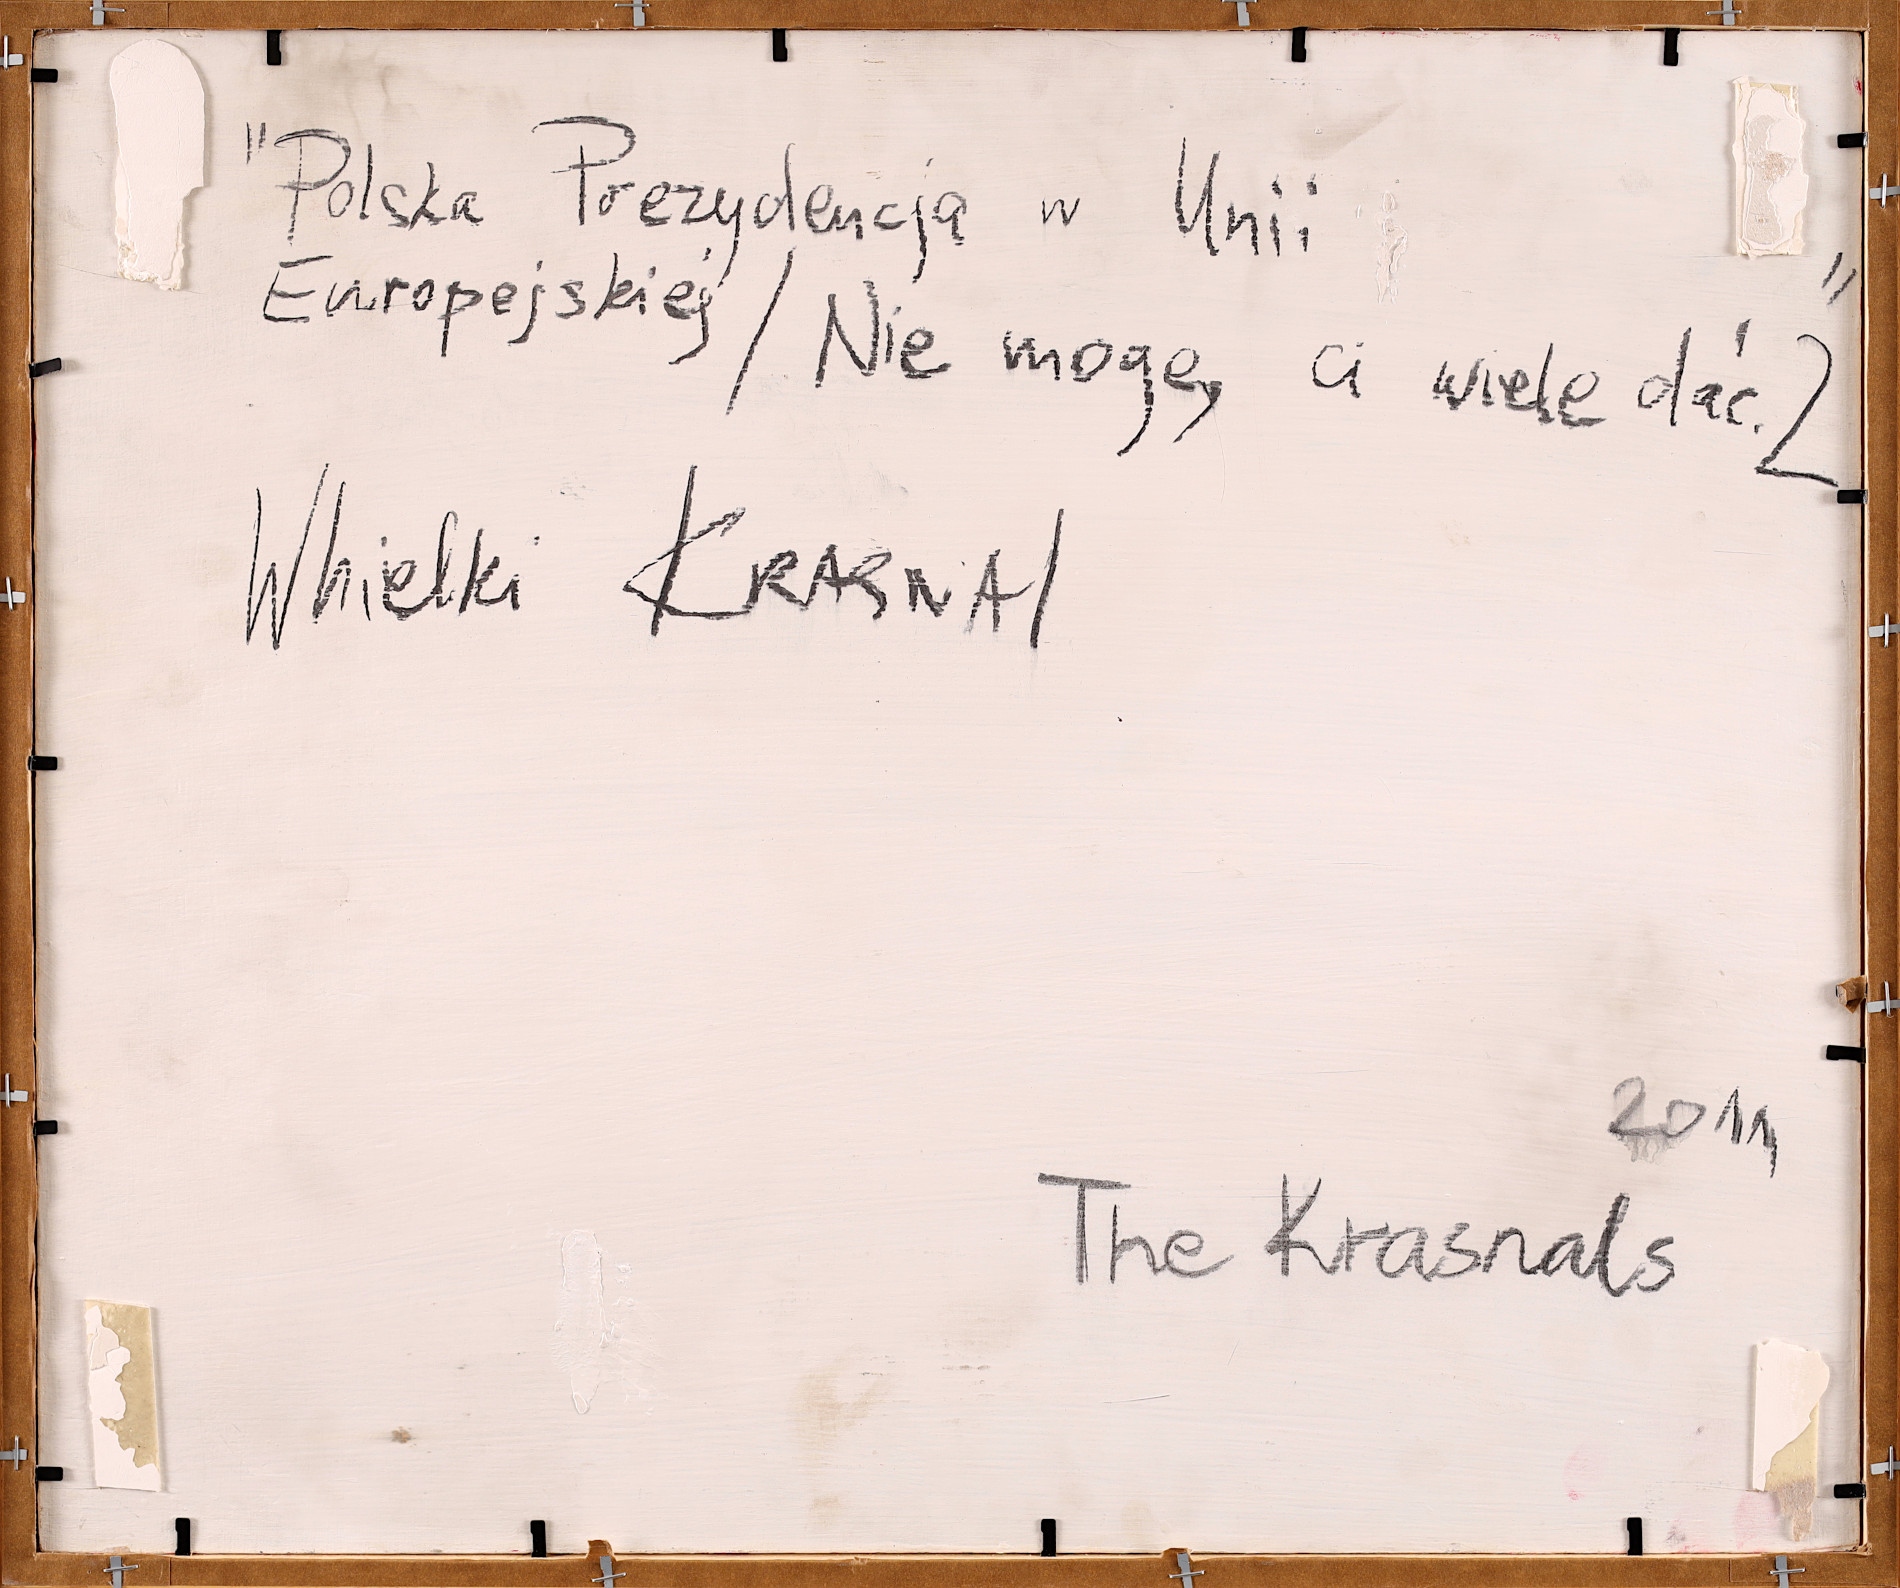 "Polska Prezydencja w Unii
Europejskiej / Nie mogę ci wiele dać. 2"
Whielki Krasnal
2011
The Krasnals